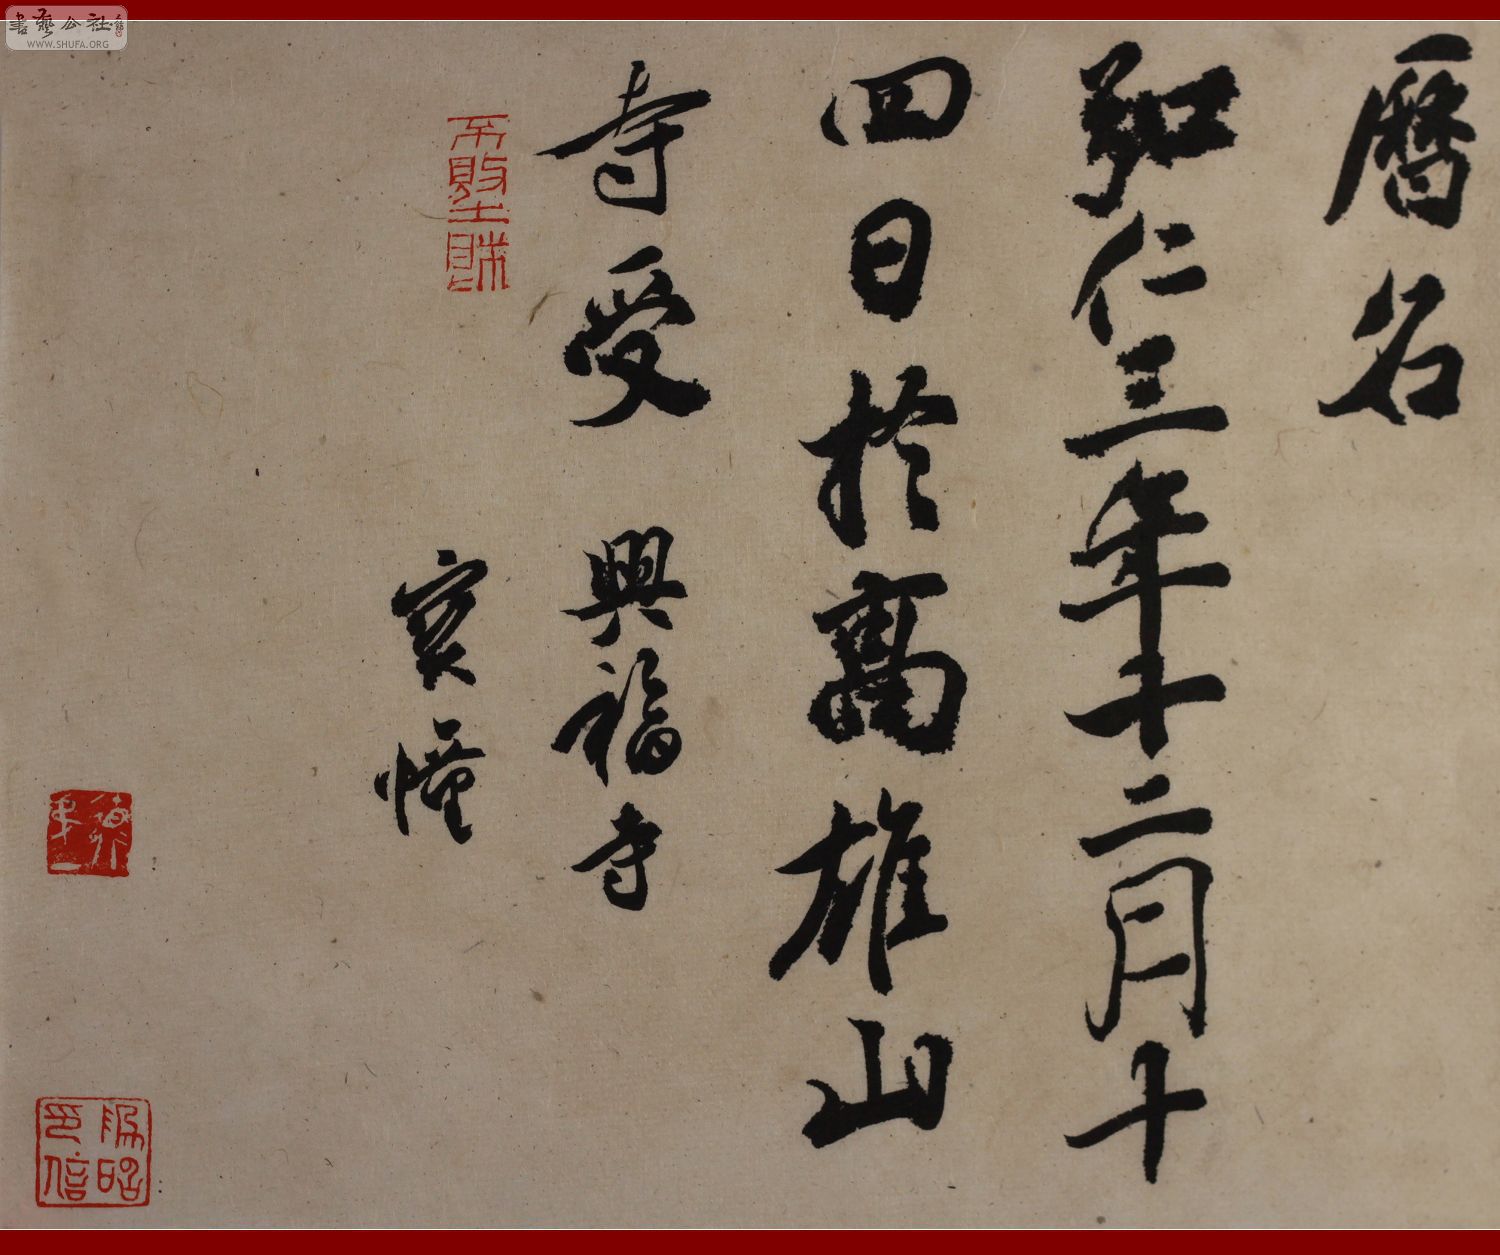 曆名
弘仁三年十二月十
四日於高雄山
寺受 興福寺
实憧
書藝公社
WWW.SHUFA.ORG